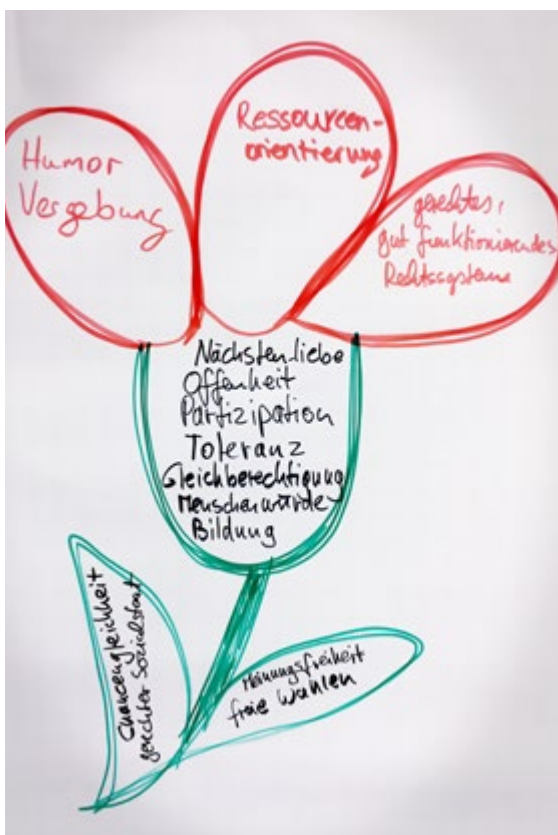 Humor
Vergebung
Ressourcen-
orientierung
gerechtes,
gut funktionierendes
Rechtssystem
Nächstenliebe
Offenheit
Partizipation
Toleranz
Gleichberechtigung
Menschenwürde
Bildung
Chancengleichheit
gerechter Sozialstaat
Meinungsfreiheit
freie Wahlen